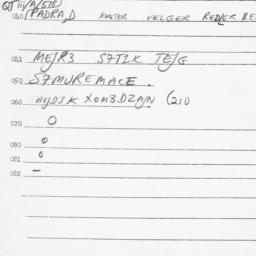 040 PADRA,D KMETER VELGER REDLER BE
051 MEJR3 S7TIK TEJG
052 S7MUREMACE.
060 HYDJK XOM3DZAJN (210
070 O
080 O
081 O
082 —